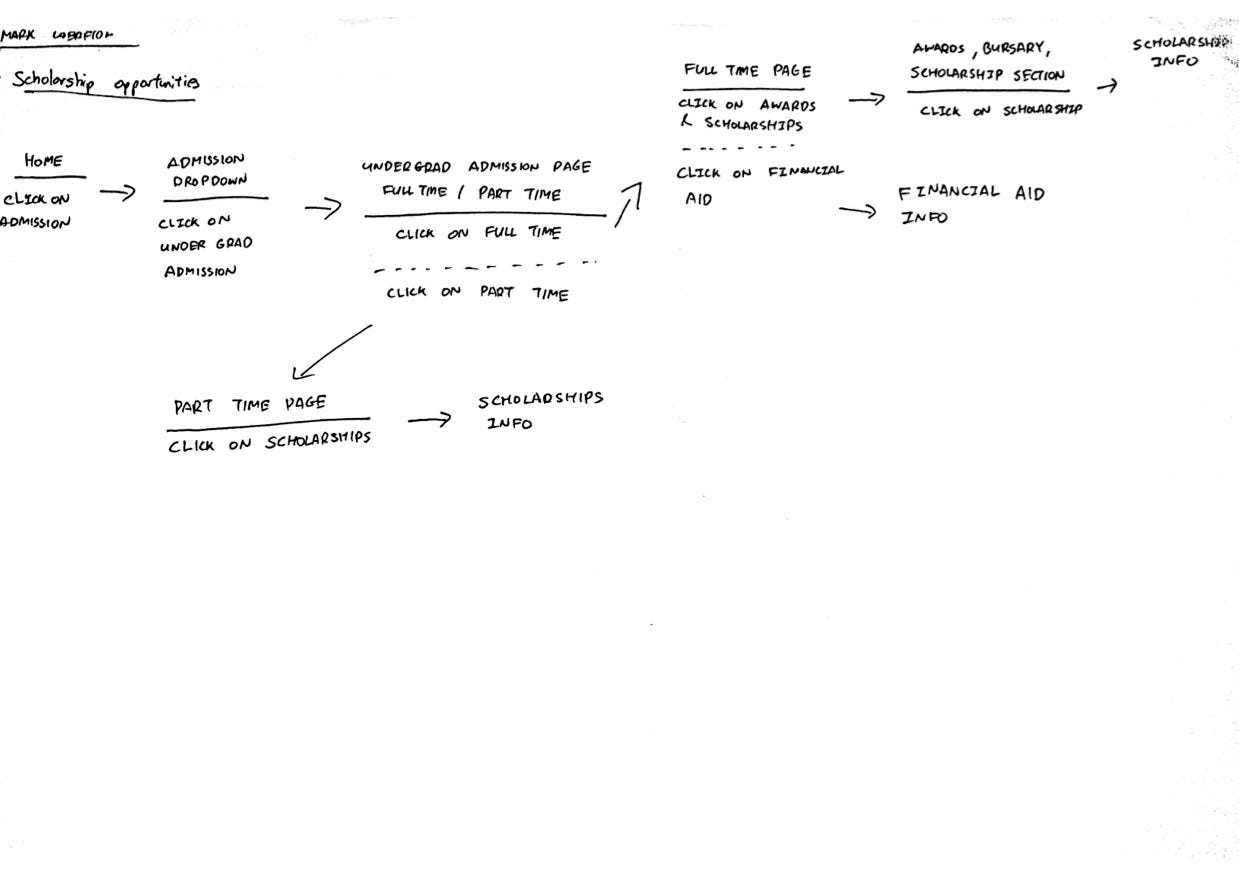 MARK
Scholarship opportunities
HOME
CLICK ON
ADMISSION
ADMISSION
DROPDOWN
CLICK ON
UNDER GRAD
ADMISSION
UNDERGRAD ADMISSION PAGE
FULL TIME / PART TIME
CLICK ON FULL TIME
CLICK ON PART TIME
FULL TIME PAGE
CLICK ON AWARDS
& SCHOLARSHIPS
CLICK ON FINANCIAL
AID
AWARDS, BURSARY,
SCHOLARSHIP SECTION
CLICK ON SCHOLARSHIP
SCHOLARSHIP
INFO
FINANCIAL AID
INFO
PART TIME PAGE
CLICK ON SCHOLARSHIPS
SCHOLARSHIPS
INFO